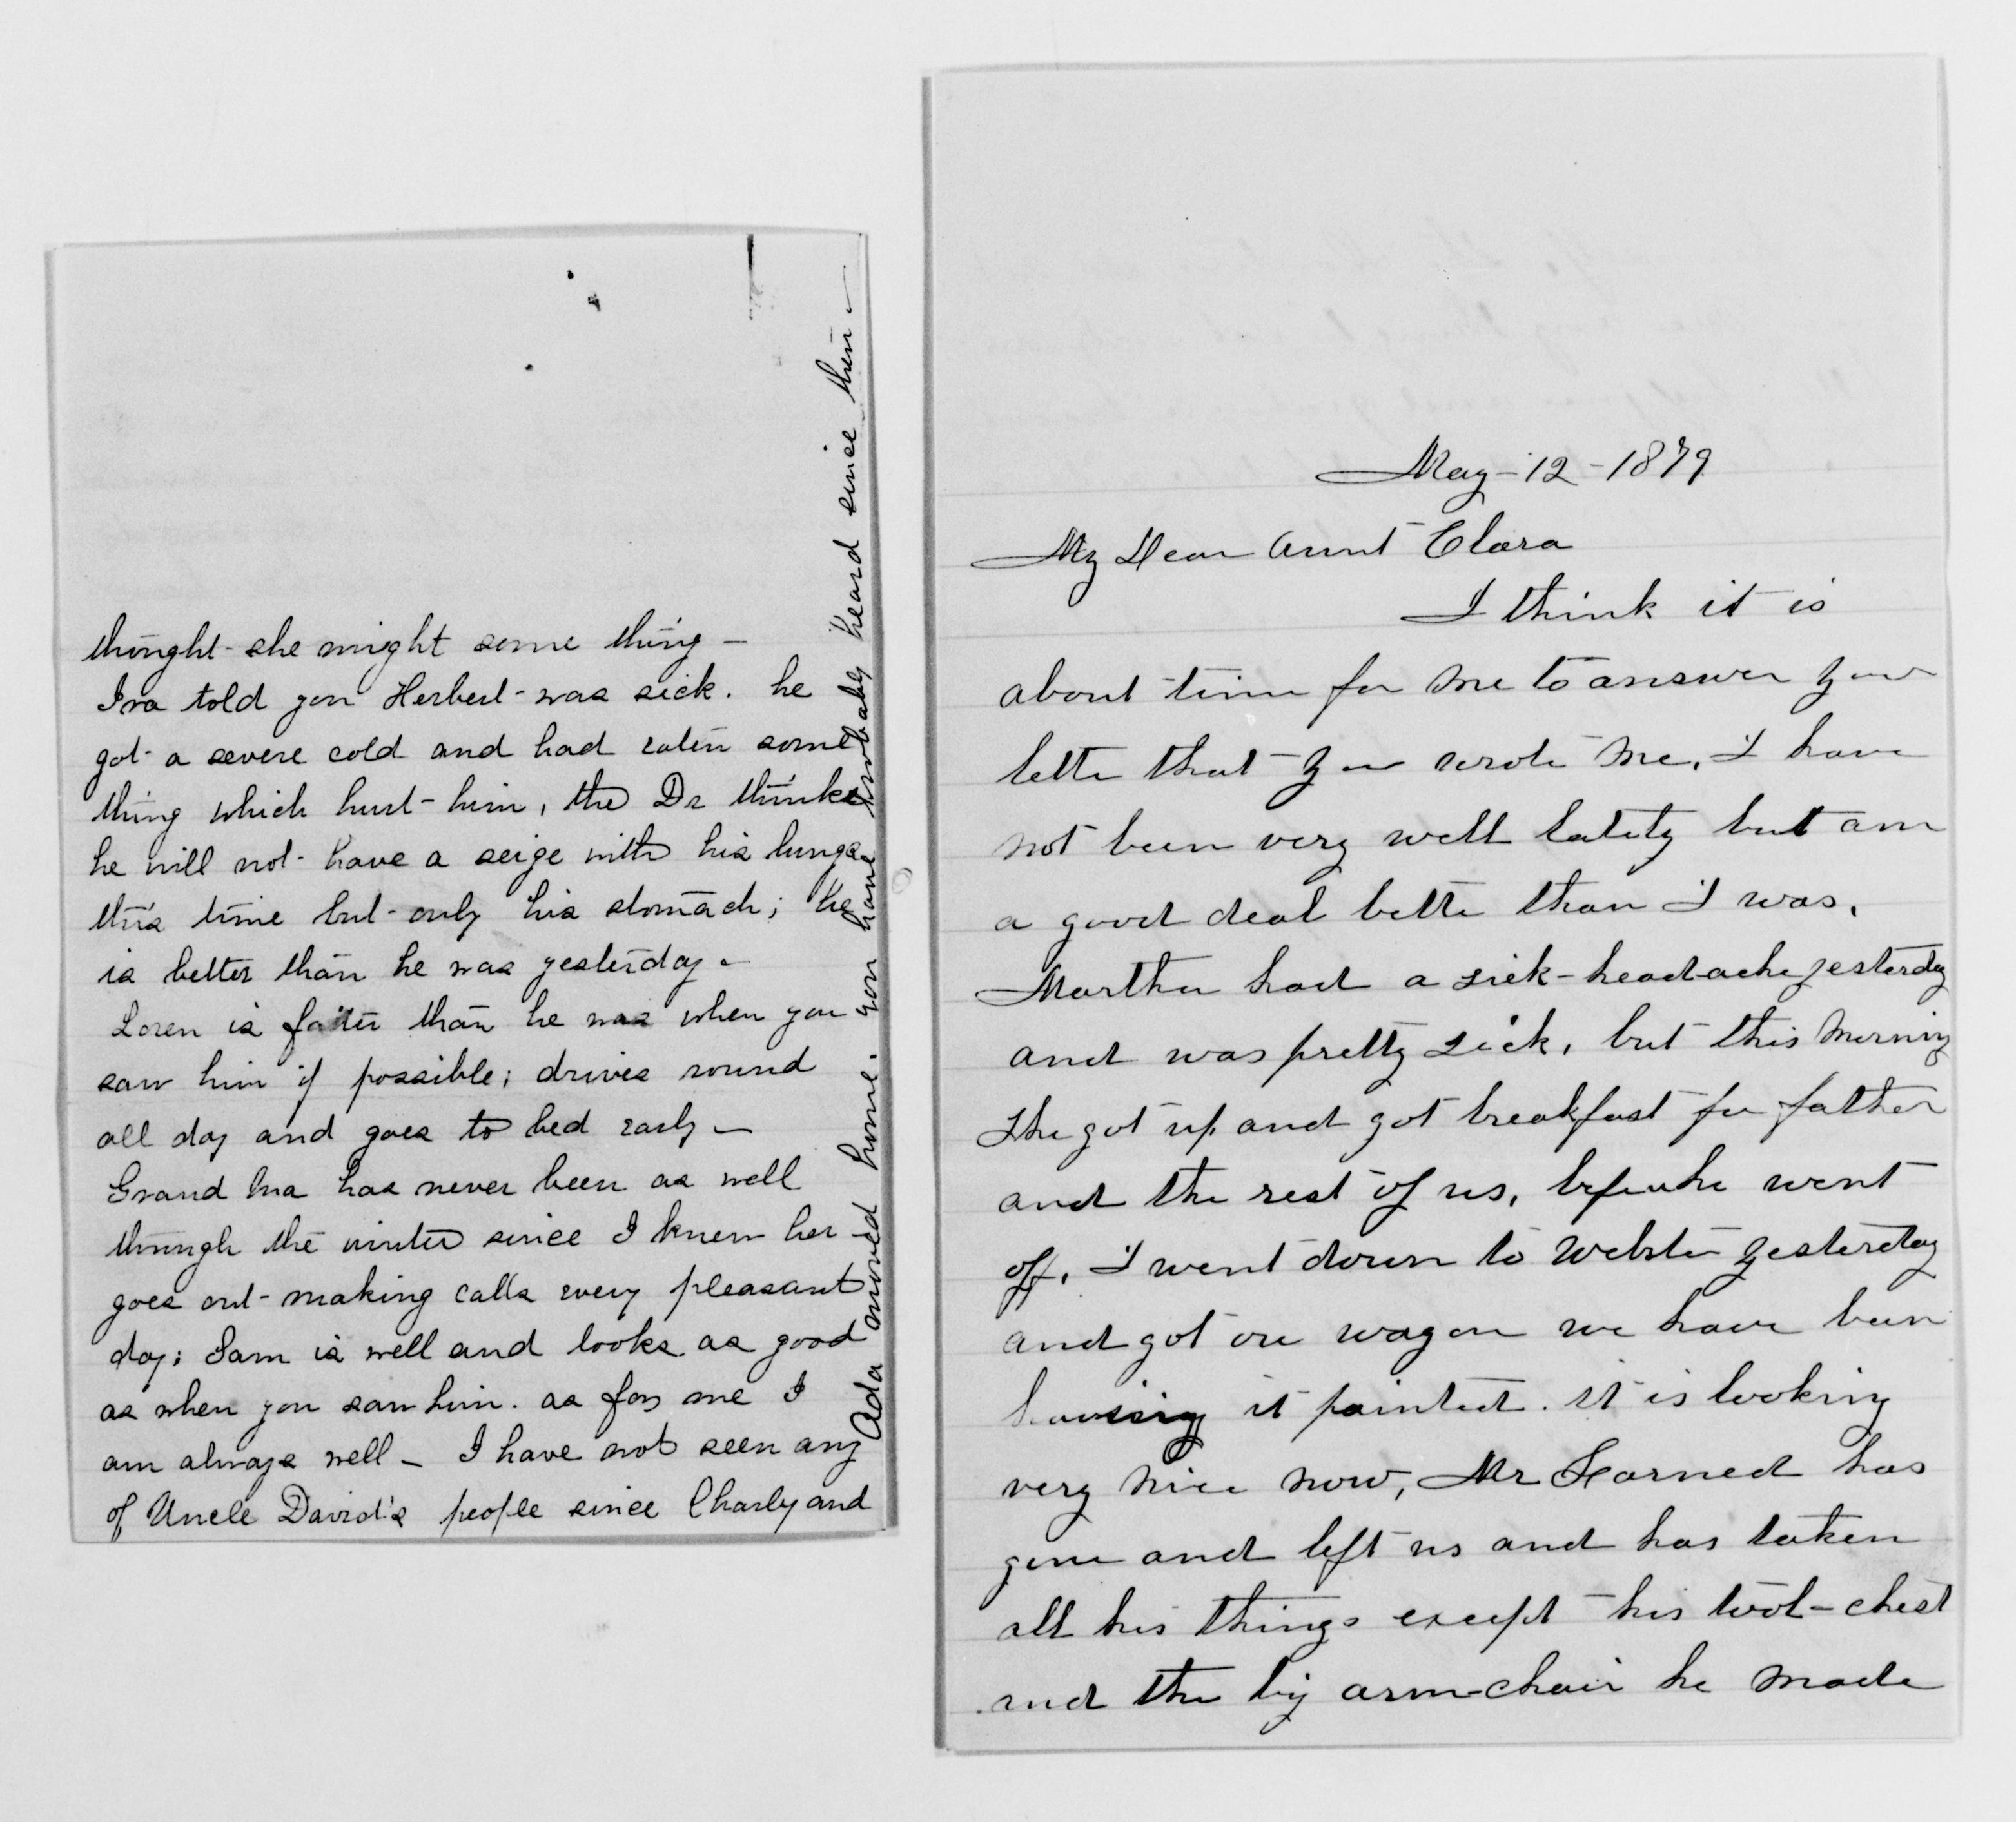 thought she might some thing —
Ira told you Herbert was sick. he
got a severe cold and had eaten some
thing which hurt him, the Dr thinks
he will not have a seige with his lungs
this time but only his stomach; he
is better than he was yesterday —
Loren is fatter than he was when you
saw him if possible; drives round
all day and goes to bed early —
Grand Ma has never been as well
through the winter since I knew her —
goes out making calls every pleasant
day; Sam is well and looks as good
as when you saw him. as for me I
am always well — I have not seen any
of Uncle David's people since Charly and
Ada arrived home. you have probably heard since then —
May - 12 - 1879
My Dear Aunt Clara
I think it is
about time for me to answer your
letter that you wrote me, I have
not been very well lately but am
a good deal better than I was.
Martha had a sick-head-ache yesterday
and was pretty sick, but this morning
she got up and got breakfast for father
and the rest of us, before he went
off. I went down to Webster yesterday
and got our wagon we have been
having it painted. it is looking
very nice now, Mr Larned has
gone and left us and has taken
all his things except his tool-chest
and the big arm-chair he made